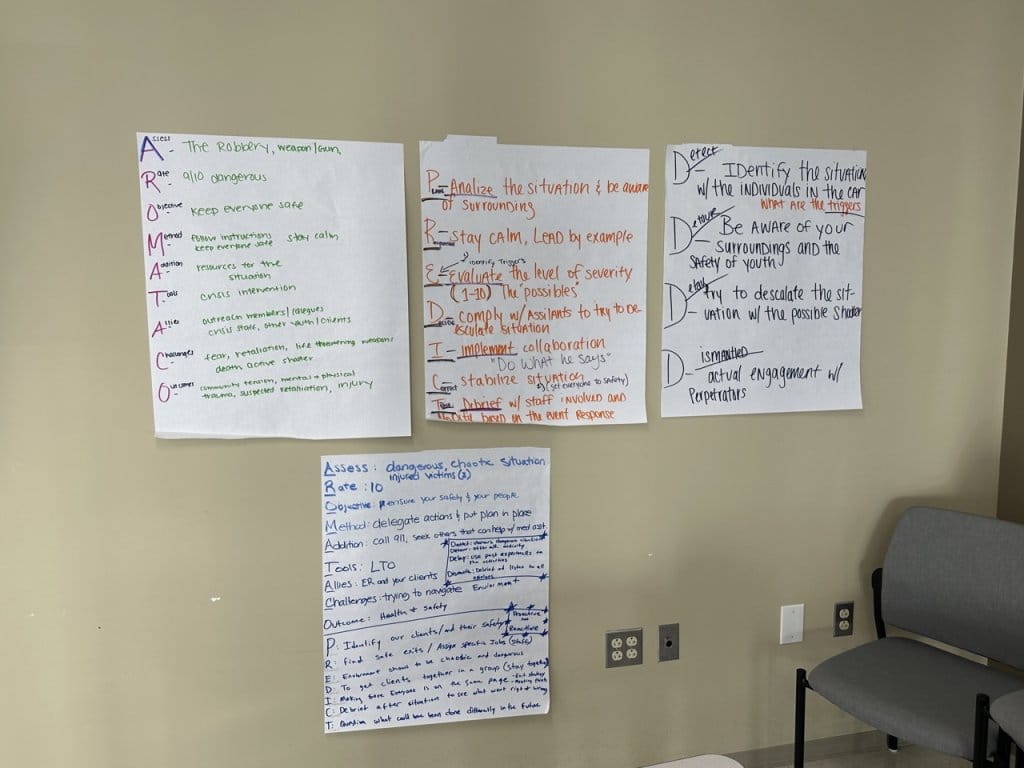 Assess - The Robbery, weapon/Gun,
Rate - 9/10 dangerous
Objective - Keep everyone safe
Method - follow instructions stay calm
keep everyone safe
Addition - resources for the
situation
Tools - crisis intervention
Allies - outreach members/
crisis staff, other youth/clients
Challenges - fear, retaliation, life threatening weapons/
death active shooter
Outcomes - community tension, mental + physical
trauma, suspected retaliation, injury
P - Analize the situation & be aware
of surrounding
R - stay calm, LEAD by example
identify triggers
E - Evaluate the level of severity
(1-10) The "possibles"
D - comply w/Assilants to try to de-
esculate situation
I - implement collaboration
"Do what he says"
C - stabilize situation
(get everyone to safety)
T - Debrief w/ staff involved and
on the event Response
Detect - Identify the situation
w/ the individuals in the car
what are the triggers
Detour - Be aware of your
surroundings and the
safety of youth
Delay - try to descalate the sit-
uation w/ the possible shooter
Dismantled - actual engagement w/
Perpetrators
Assess: dangerous, chaotic situation
injured victims (2)
Rate: 10
Objective: ensure your safety & your people.
Method: delegate actions & put plan in place
Addition: call 911, seek others that can help w/ med asst.
Tools: LTO
Allies: ER and your clients
Challenges: trying to navigate Enviorment
Outcome: Health & Safety
Delay: use past experiences to
Dismantle: Debrief and listen to all
Proactive
and
Reactive
P: Identify our clients/and their safety
R: find safe exits / Assign specific Jobs (staff)
E: Enviorment shows to be chaotic and dangerous
D: To get clients together in a group (stay together)
- exit strategy
- meeting point
I: Making sure Everyone is on the same page
C: Debrief after situation to see what went right & wrong
T: Question what could have been done differently in the future